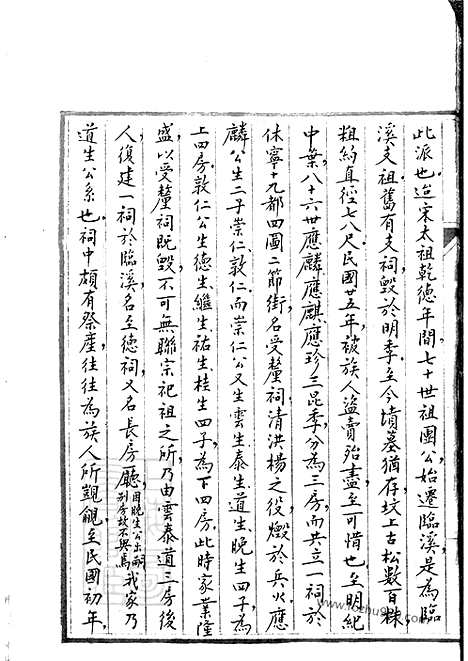 此派也迨宋太祖乾德年間七十世祖團公始遷臨溪是為臨
溪支祖舊有支祠毀於明季至今墳墓猶存坟上古松數百株
粗約直徑七八尺民國廿五年被族人盜賣殆盡至可惜也至明紀
中葉八十六世應麟應麒應珍三昆季分為三房而共立一祠於
休寧十九都四圖二節街名受釐祠清洪楊之役燬於兵火應
麟公生二子崇仁敦仁而崇仁公又生雲生泰生道生晚生四子為
上四房敦仁公生德生繼生祐生桂生四子為下四房此時家業隆
盛以受釐祠既毀不可無聯宗祀祖之所乃由雲泰道三房後
人復建一祠於臨溪名至德祠又名長房廳因晚生公出嗣別房故不與焉我家乃
道生公系也祠中頗有祭產往往為族人所覬覦至民國初年